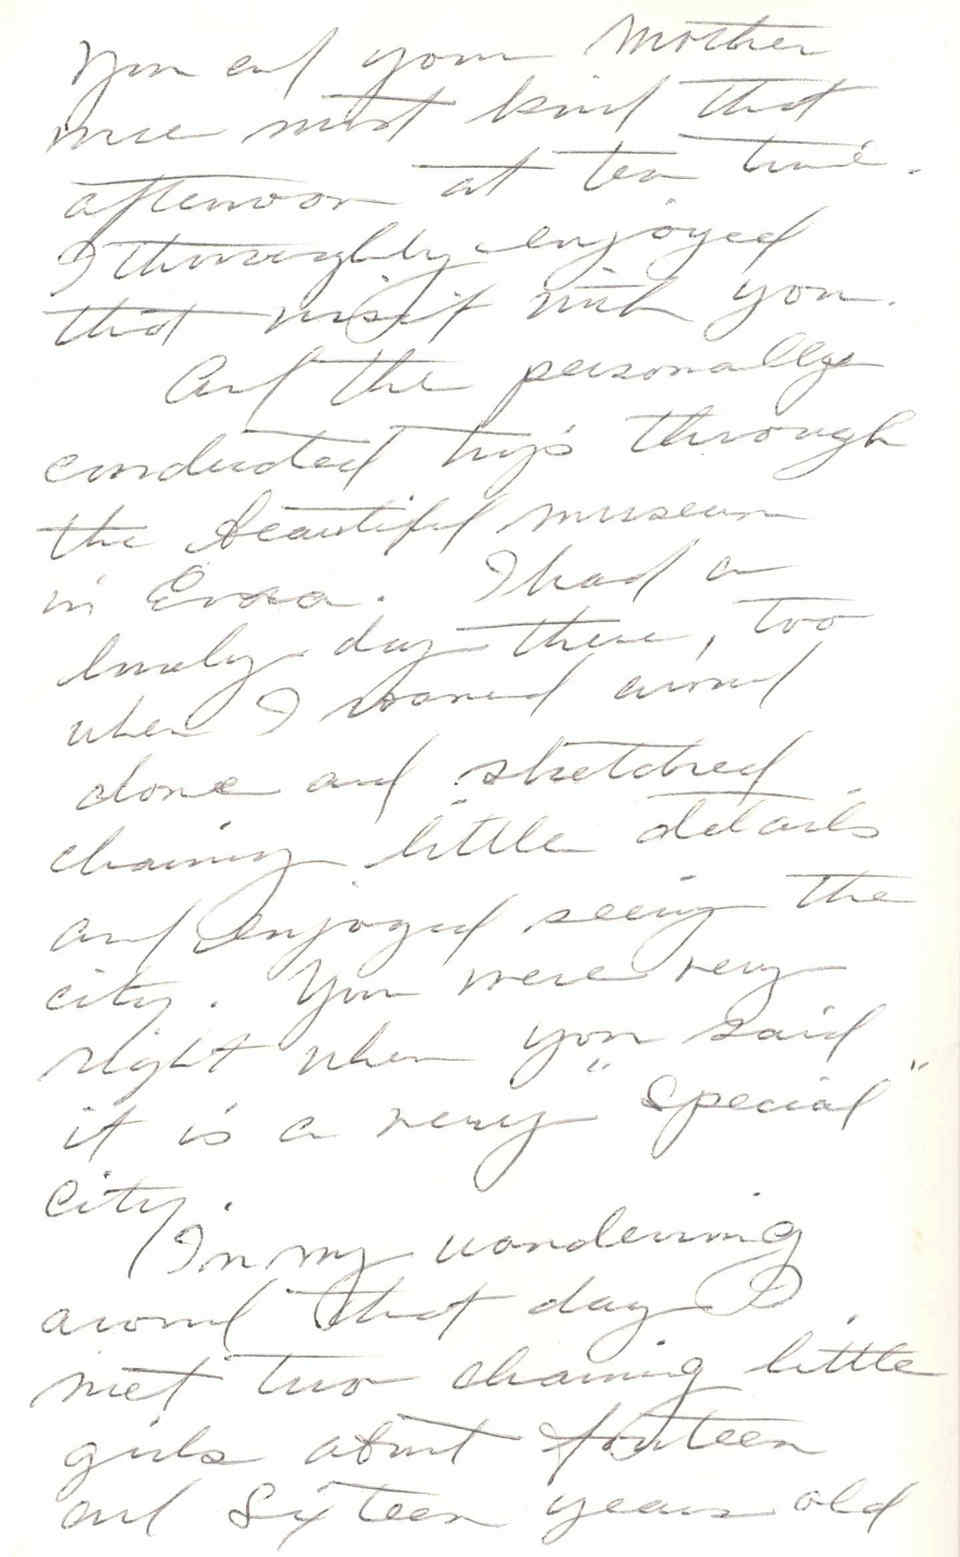 You and your Mother
were most kind that
afternoon at tea time.
I thoroughly enjoyed
that visit with you.
And the personally
conducted trips through
the beautiful museum
in Evora. I had a
lovely day there, too
when I roamed around
alone and sketched
charming little details
and enjoyed seeing the
city. You were very
right when you said
it is a very "special"
city.
In my wandering
around that day I
met two charming little
girls about fourteen
and sixteen years old